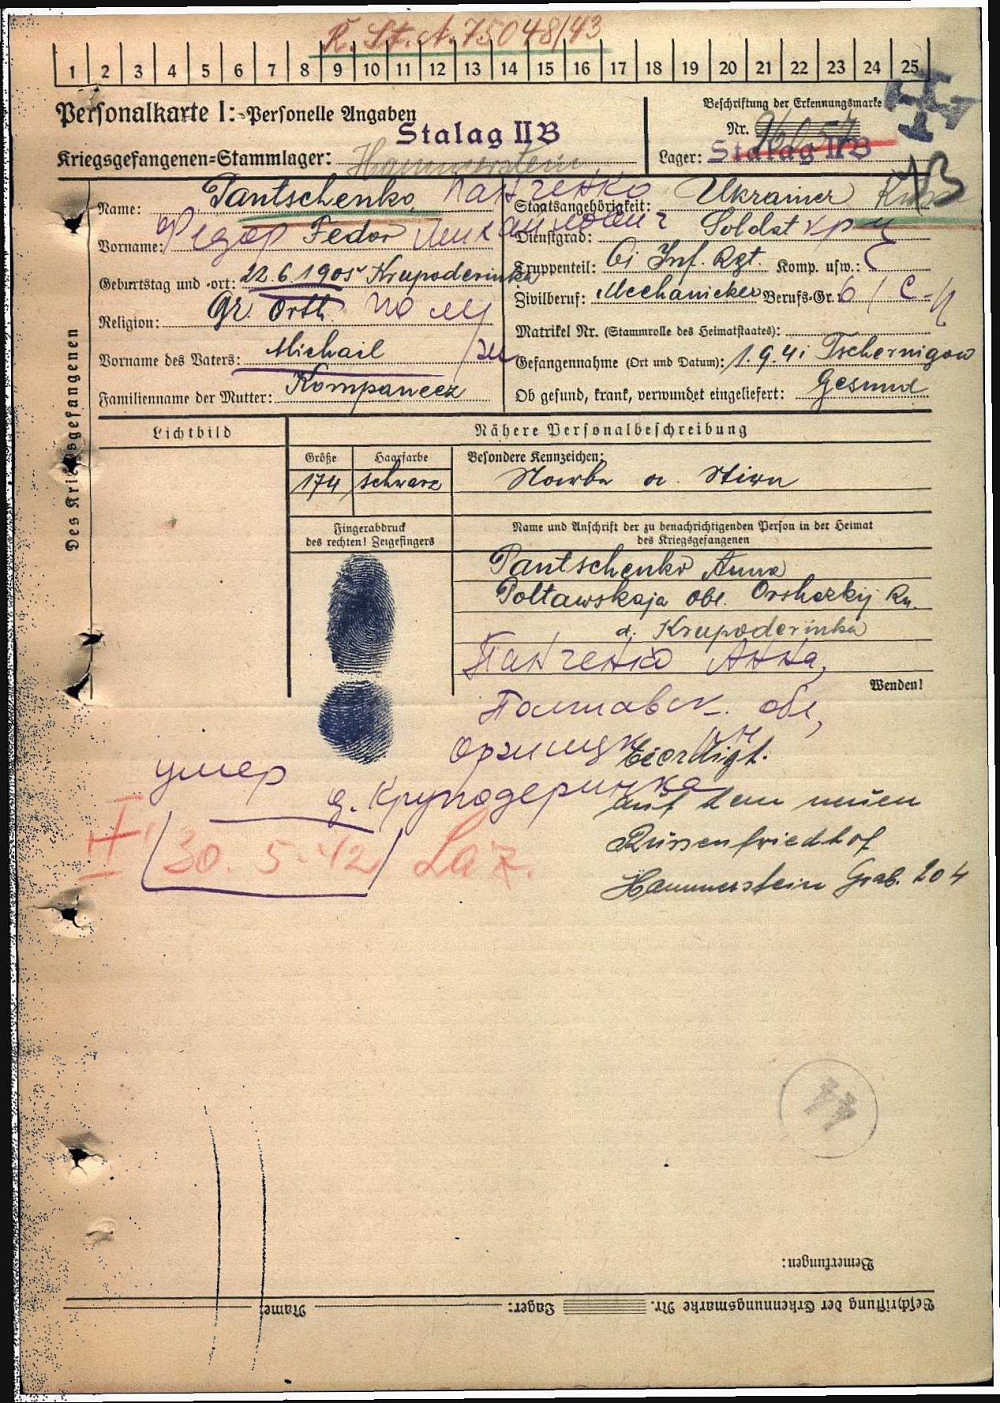 R. St. A. 75048/43
1 2 3 4 5 6 7 8 9 10 11 12 13 14 15 16 17 18 19 20 21 22 23 24 25
Personalkarte I: Personelle Angaben
Stalag II B
Kriegsgefangenen-Stammlager: Hammerstein
Beschriftung der Erkennungsmarke
Nr.
Lager: Stalag II B
Des Kriegsgefangenen
Name: Pantschenko Панченко
Vorname: Федор Fedor Михайлович
Geburtstag und -ort: 22.6.1905 Krupoderinka
Religion: Gr. Orth.
Vorname des Vaters: Michail
Familienname der Mutter: Kompaneez
Staatsangehörigkeit: Ukrainer
Dienstgrad: Soldat кр
Truppenteil: Inf. Rgt. Komp. usw.:
Zivilberuf: Mechanicker Berufs-Gr. 6
Matrikel Nr. (Stammrolle des Heimatstaates):
Gefangennahme (Ort und Datum): 1.9.41 Tschernigow
Ob gesund, krank, verwundet eingeliefert: Gesund
Lichtbild
Nähere Personalbeschreibung
Größe
Haarfarbe
Besondere Kennzeichen:
174
schwarz
Narbe a. Stirn
Fingerabdruck
des rechten! Zeigefingers
Name und Anschrift der zu benachrichtigenden Person in der Heimat
des Kriegsgefangenen
Pantschenko Anna
Poltawskaja obl. Orshezkij Rn.
d. Krupoderinka
Панченко Анна,
Wenden!
Полтавск. обл,
Оржицк. рн
д. Круподеринка
умер
30.5.42 Laz.
Beerdigt.
auf dem neuen
Russenfriedhof
Hammerstein Grab. 204
Bemerkungen:
Beschriftung der Erkennungsmarke Nr. Lager: Name: